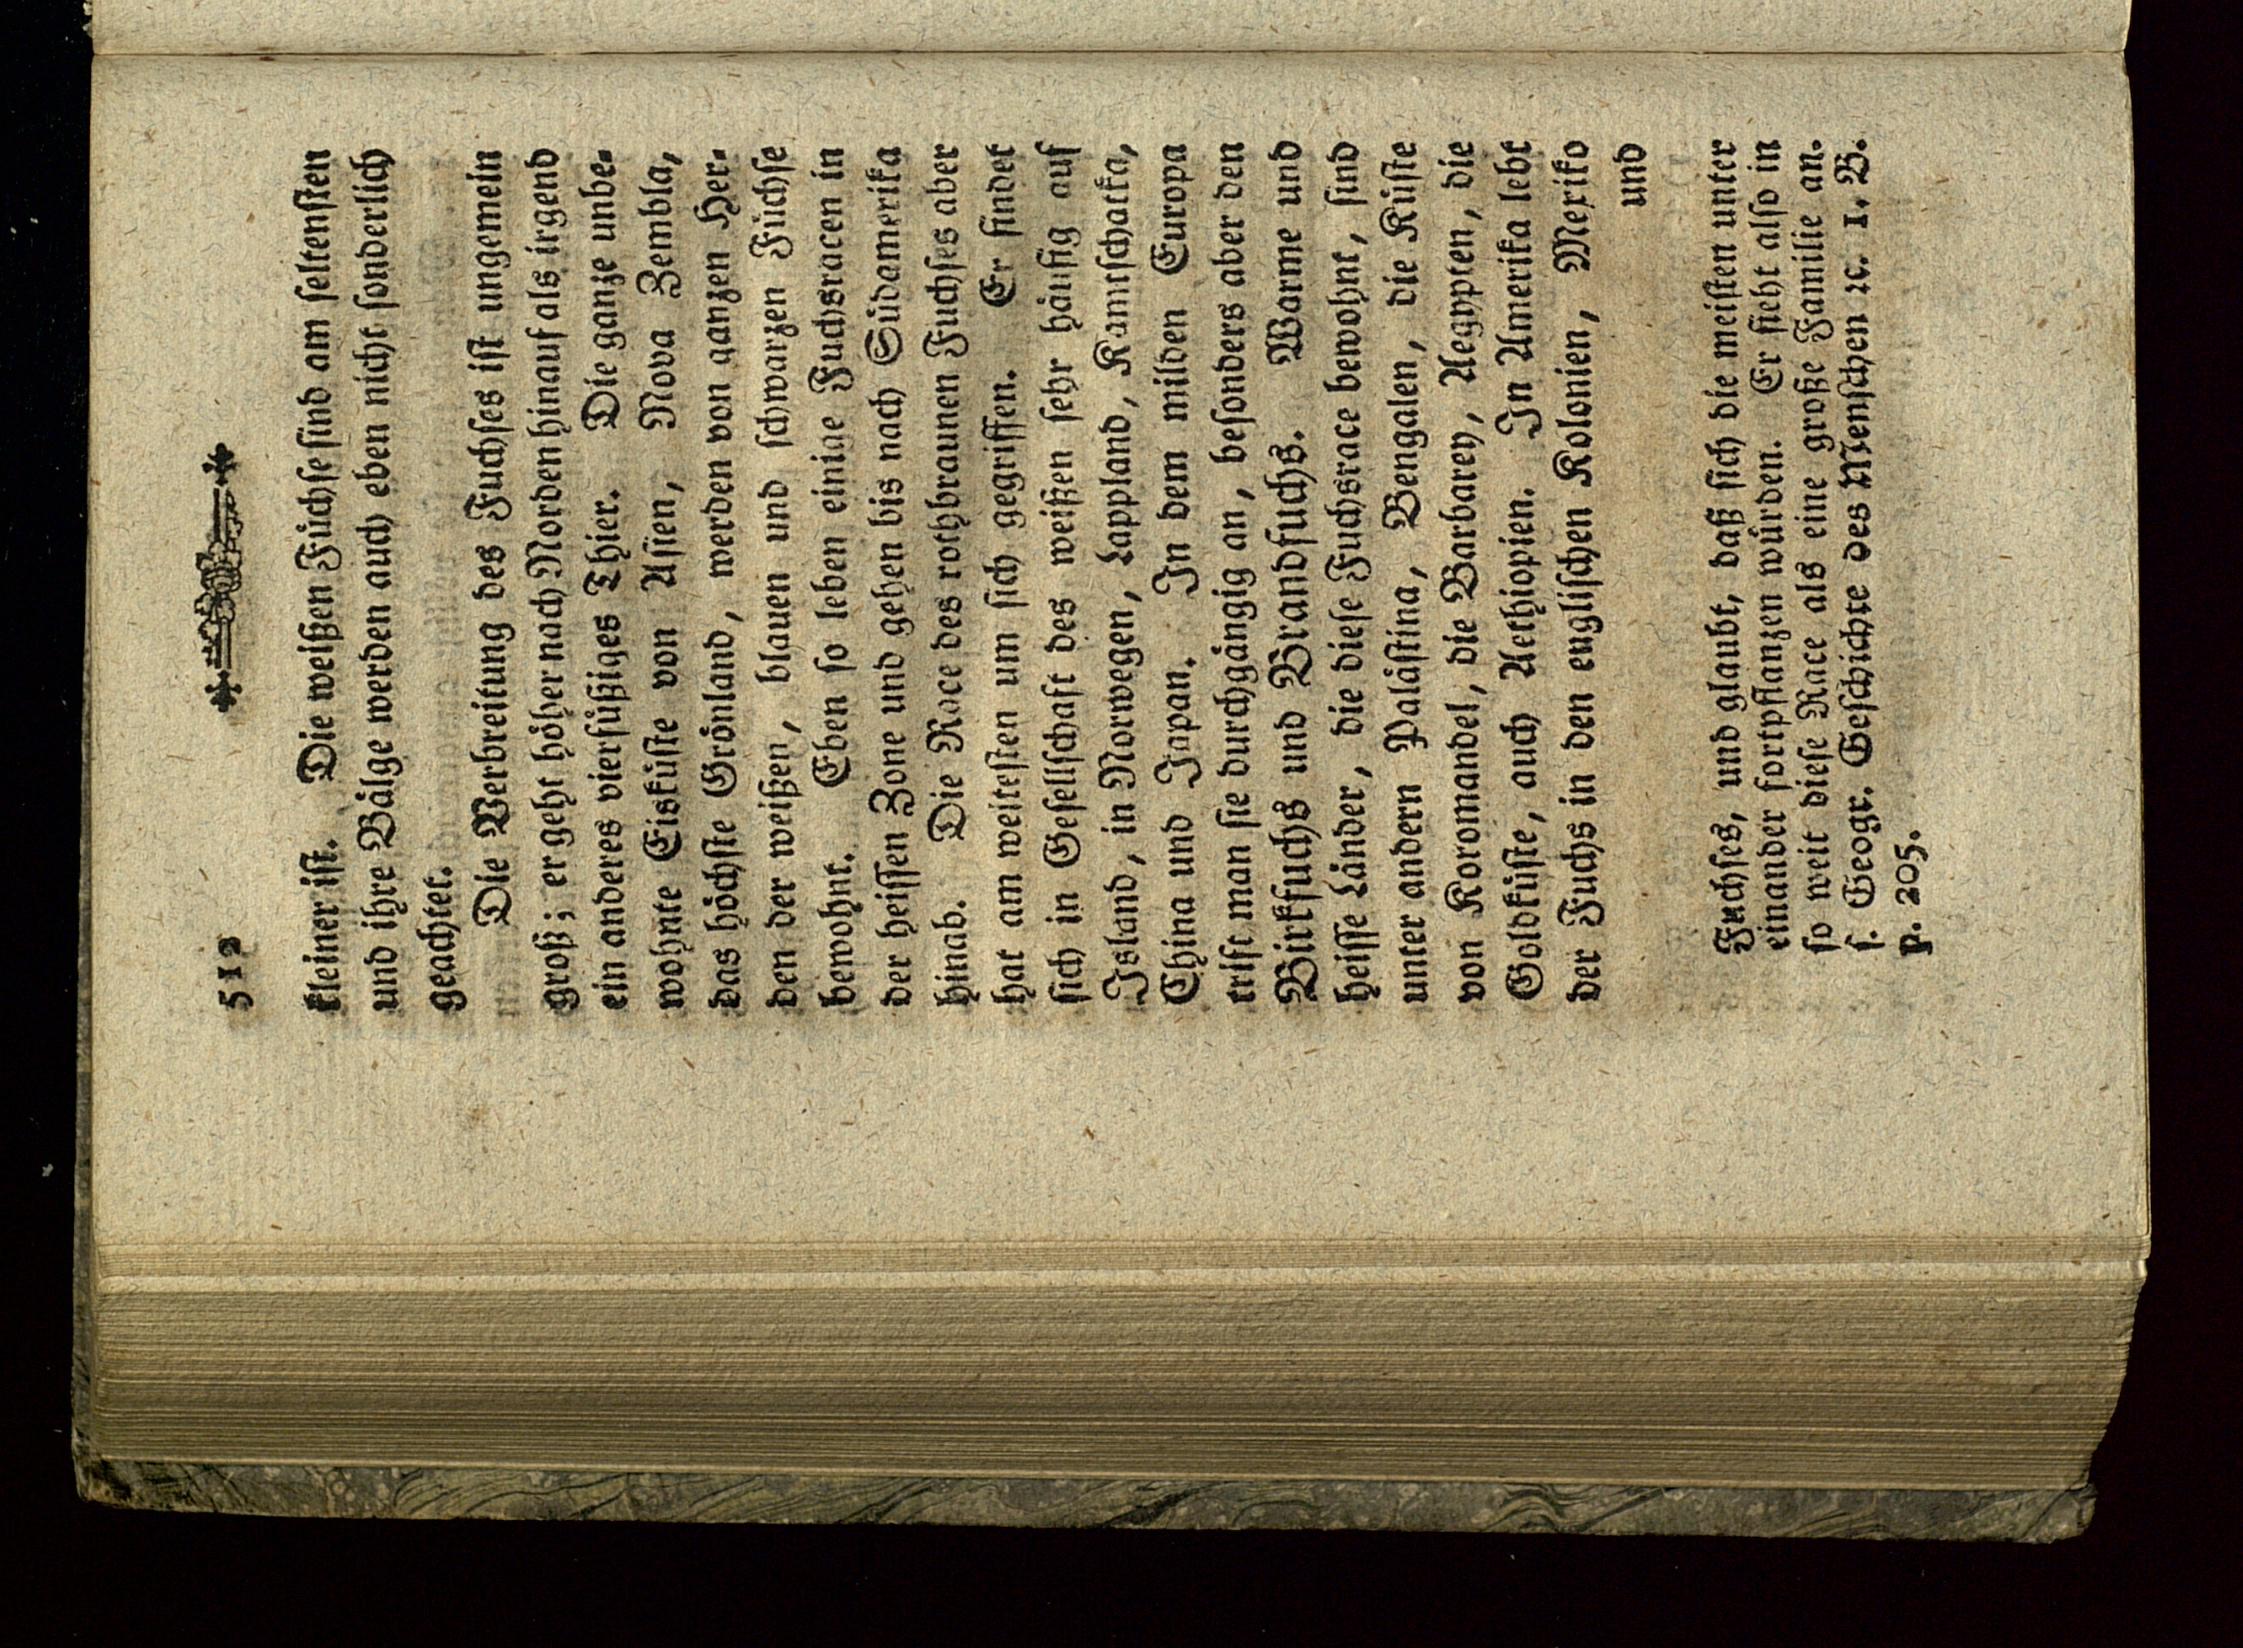 512
kleiner iſt. Die weißen Füchſe ſind am ſeltenſten
und ihre Bälge werden auch eben nicht ſonderlich
geachtet.
Die Verbreitung des Fuchſes iſt ungemein
groß; er geht höher nach Norden hinauf als irgend
ein anderes vierfüßiges Thier. Die ganze unbe-
wohnte Eisküſte von Aſien, Nova Zembla,
das höchſte Grönland, werden von ganzen Her-
den der weißen, blauen und ſchwarzen Füchſe
bewohnt. Eben ſo leben einige Fuchsracen in
der heiſſen Zone und gehen bis nach Südamerika
hinab. Die Race des rothbraunen Fuchſes aber
hat am weiteſten um ſich gegriffen. Er findet
ſich in Geſellſchaft des weißen ſehr häufig auf
Island, in Norwegen, Lappland, Kamtſchatka,
China und Japan. In dem milden Europa
trift man ſie durchgängig an, beſonders aber den
Birkfuchs und Brandfuchs. Warme und
heiſſe Länder, die dieſe Fuchsrace bewohnt, ſind
unter andern Paläſtina, Bengalen, die Küſte
von Koromandel, die Barbarey, Aegypten, die
Goldküſte, auch Aethiopien. In Amerika lebt
der Fuchs in den engliſchen Kolonien, Mexiko
und
Fuchſes, und glaubt, daß ſich die meiſten unter
einander fortpflanzen würden. Er ſieht alſo in
ſo weit dieſe Race als eine große Familie an.
ſ. Geogr. Geſchichte des Menſchen ꝛc. 1. B.
p. 205.